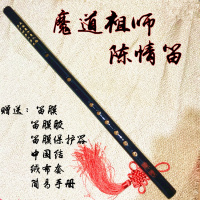 魔道祖师
陈情笛
赠送：笛膜
笛膜胶
笛膜保护器
中国结
绒布套
简易手册